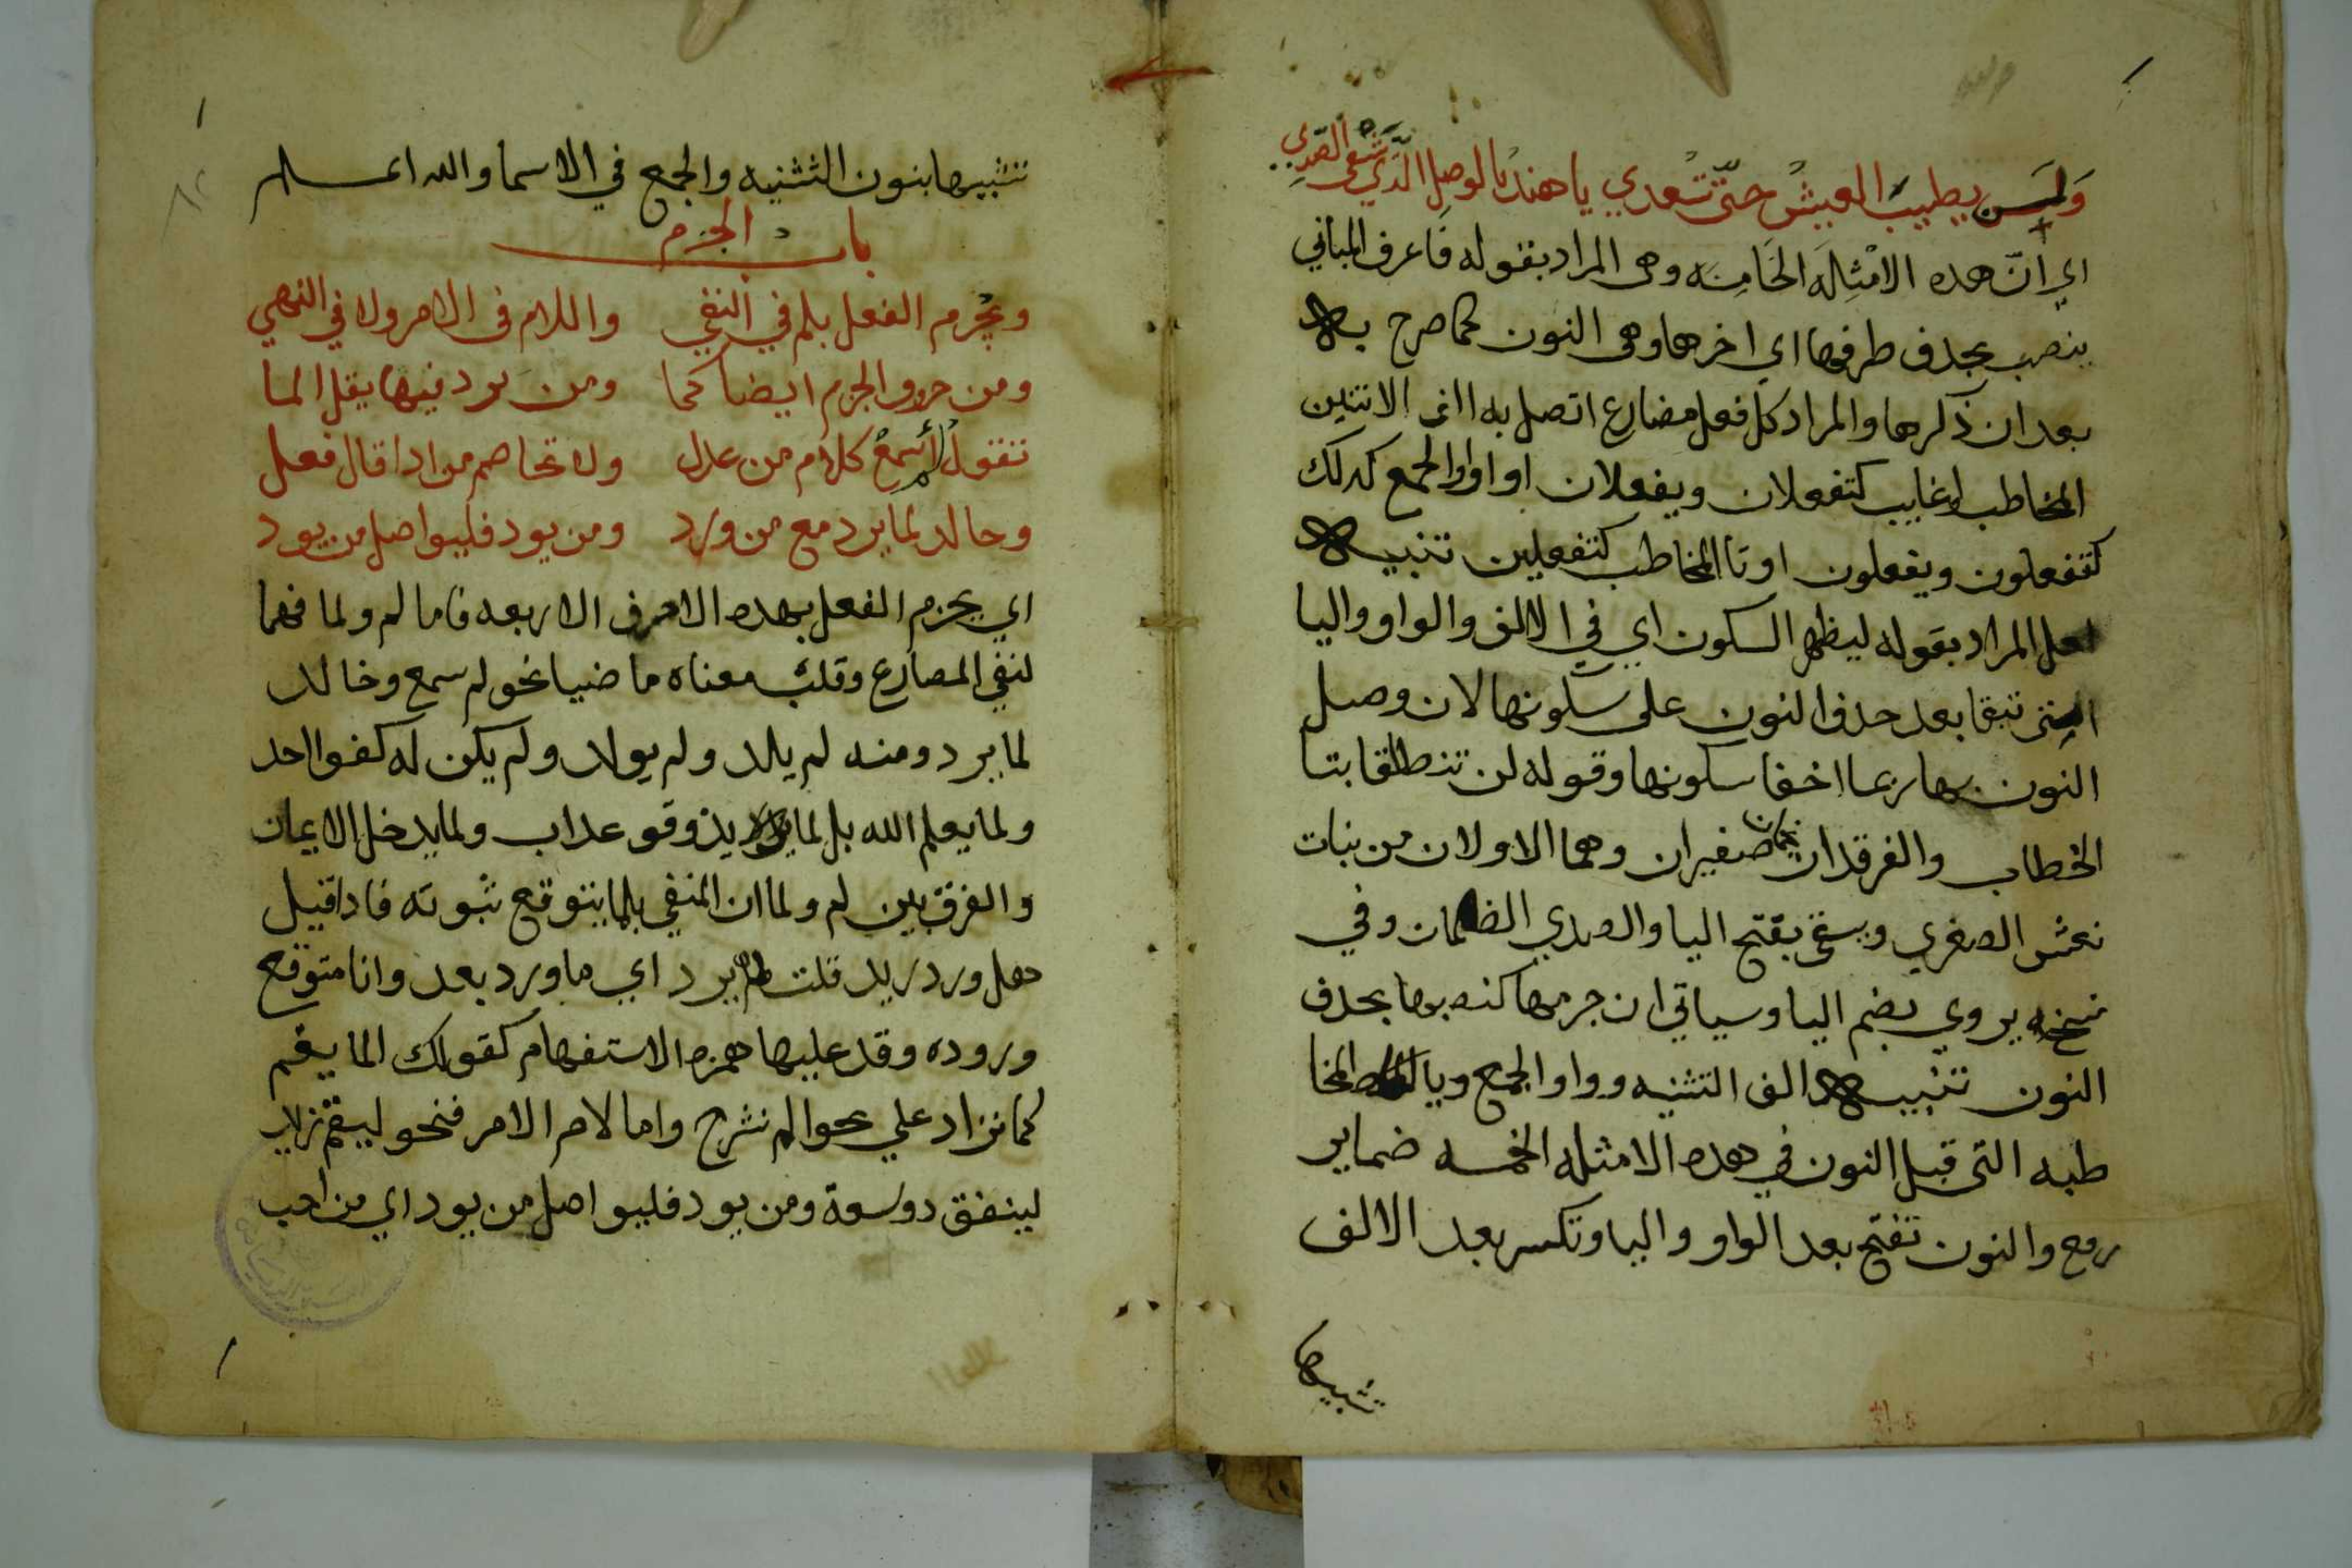 ولن يطيب العيش حتى تسعدي يا هند بالوصل الذي يشفي الصدي
اي انّ هده الامثله الخامسه وهى المراد بقوله فاعرف المباني
ينصب بحدف طرفها اي اخرها وهى النون كما صرح به
بعد ان ذكرها والمراد كل فعل مضارع اتصل به الف الاثنين
المخاطب او غايب كتفعلان ويفعلان او واو الجمع كدلك
كتفعلون ويفعلون او تا المخاطب كتفعلين تنبيه
لعل المراد بقوله ليظهر السكون اي في الالف والواو واليا
التى تبقا بعد حدف النون على سكونها لان وصل
النون بها ربما اخفا سكونها وقوله لن تنطلقا بتا
الخطاب والفرقدان نجمان صغيران وهما الاولان من بنات
نعش الصغري ويشفي بفتح اليا والصدي الضمان وفي
نسخه يروي بضم اليا وسياتي ان جزمها كنصبها بحدف
النون تنبيه الف التثنيه وواو الجمع ويا المخا
طبه التى قبل النون في هده الامثله الخمسه ضماير
رفع والنون تفتح بعد الواو واليا وتكسر بعد الالف
تشبيها
تشبيها بنون التثنيه والجمع في الاسما والله اعلم
باب الجزم
ويجزم الفعل بلم في النفي واللام فى الامر ولا في النهي
ومن حروف الجزم ايضا لما ومن يزد فيها يقل الما
تقول لم أسمع كلام من عدل ولا تخاصم من ادا قال فعل
وخالد لما يرد مع من ورد ومن يود فليواصل من يود
اي يجزم الفعل بهده الاحرف الاربعه فاما لم ولما فهما
لنفي المضارع وقلب معناه ماضيا نحو لم يسمع وخالد
لما يرد ومنه لم يلد ولم يولد ولم يكن له كفوا احد
ولما يعلم الله بل لما يذوقو عداب ولما يدخل الايمان
والفرق بين لم ولما ان المنفي بلما يتوقع ثبوته فادا قيل
هل ورد زيد قلت لما يرد اي ما ورد بعد وانا متوقع
وروده وقد عليها همزه الاستفهام كقولك الما يقم
كما تزاد علي نحو الم نشرح واما لام الامر فنحو ليقم زيد
لينفق دو سعة ومن يود فليواصل من يود اي من احب